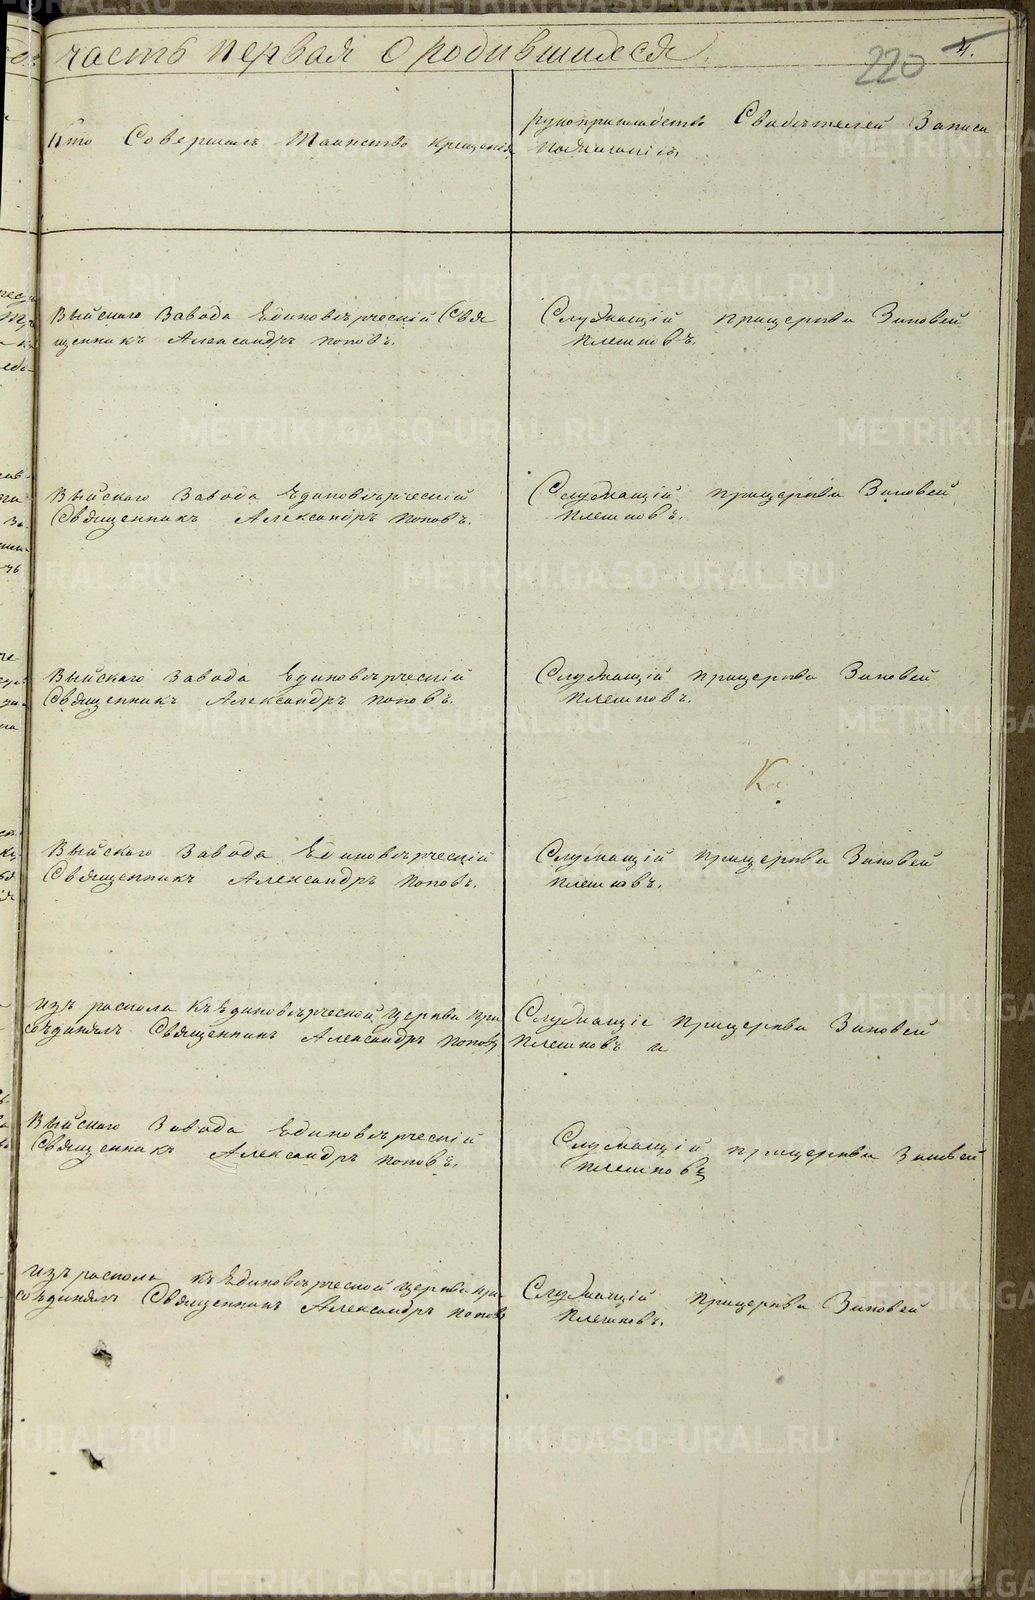 часть первая о родившихся.
220
4.
Кто Совершалъ Таинство крещенія
рукоприкладство Свидѣтелей Записи
по желанію.
Выйскаго Завода Единовѣрческій Свя
щенникъ Александръ Поповъ.
Служащій при церкви Зиновей
Плешковъ.
Выйскаго Завода Единовѣрческій
Священникъ Александръ Поповъ.
Служащій при церкви Зиновей
Плешковъ.
Выйскаго Завода Единовѣрческій
Священникъ Александръ Поповъ.
Служащій при церкви Зиновей
Плешковъ.
К.
Выйскаго Завода Единовѣрческій
Священникъ Александръ Поповъ.
Служащій при церкви Зиновей
Плешковъ.
изъ раскола къ Единовѣрческой церкви при
съединялъ Священникъ Александръ Поповъ
Служащіе при церкви Зиновей
Плешковъ и
Выйскаго Завода Единовѣрческій
Священникъ Александръ Поповъ.
Служащій при церкви Зиновей
Плешковъ
изъ раскола къ Единовѣрческой церкви при
съединялъ Священникъ Александръ Поповъ
Служащій при церкви Зиновей
Плешковъ.
METRIKI.GASO-URAL.RU